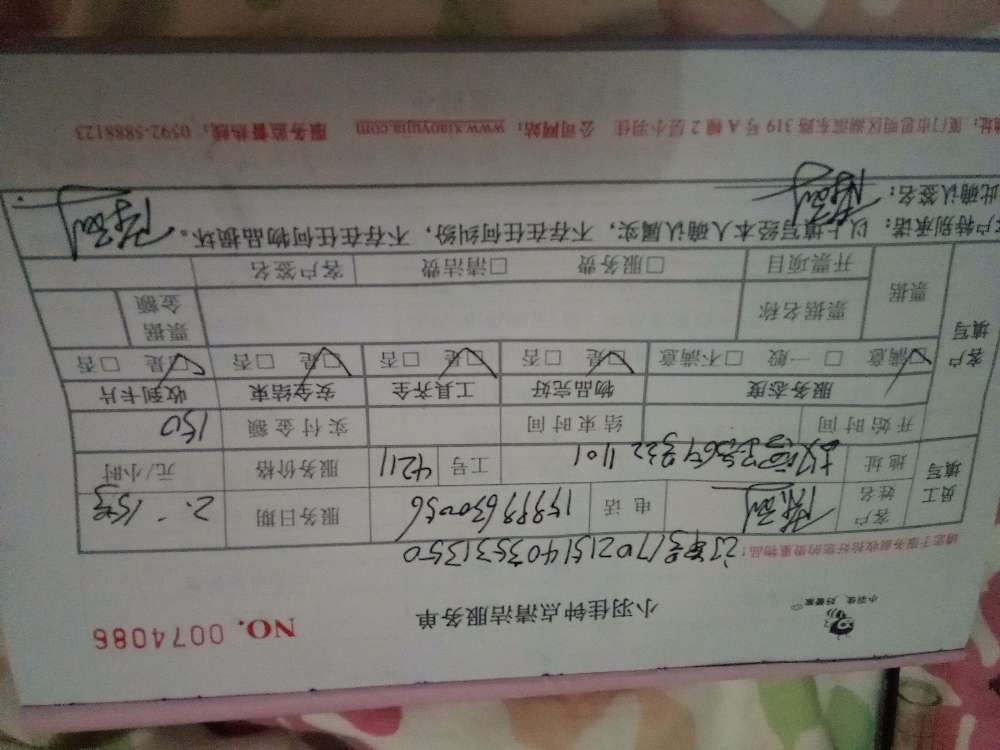 小羽佳 好管家
小羽佳钟点清洁服务单
NO. 0074086
请您于服务前收拾好您的贵重物品!
订单号17021514035331350
员工填写
客户姓名
电话
服务日期
2.15号
地址
工号
4211
服务价格
元/小时
开始时间
结束时间
实付金额
150
客户填写
服务态度
物品完好
工具齐全
安全结束
收到卡片
满意 □一般 □不满意
□是 □否
□是 □否
□是 □否
□是 □否
票据
票据名称
票据金额
开票项目
□服务费 □清洁费
客户签名
客户特别承诺:以上填写经本人确认属实,不存在任何纠纷,不存在任何物品损坏。
此确认签名:
地址:厦门市思明区湖滨东路 319 号 A 幢 2 层小羽佳 公司网站:www.xiaoyujia.com 服务监督热线:0592-5888123